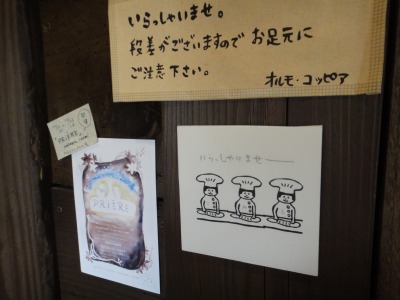 いらっしゃいませ。
段差がございますので お足元に
ご注意下さい。
オルモ・コッピア
「PRIÈRE」
PRIÈRE
いらっしゃいませ――